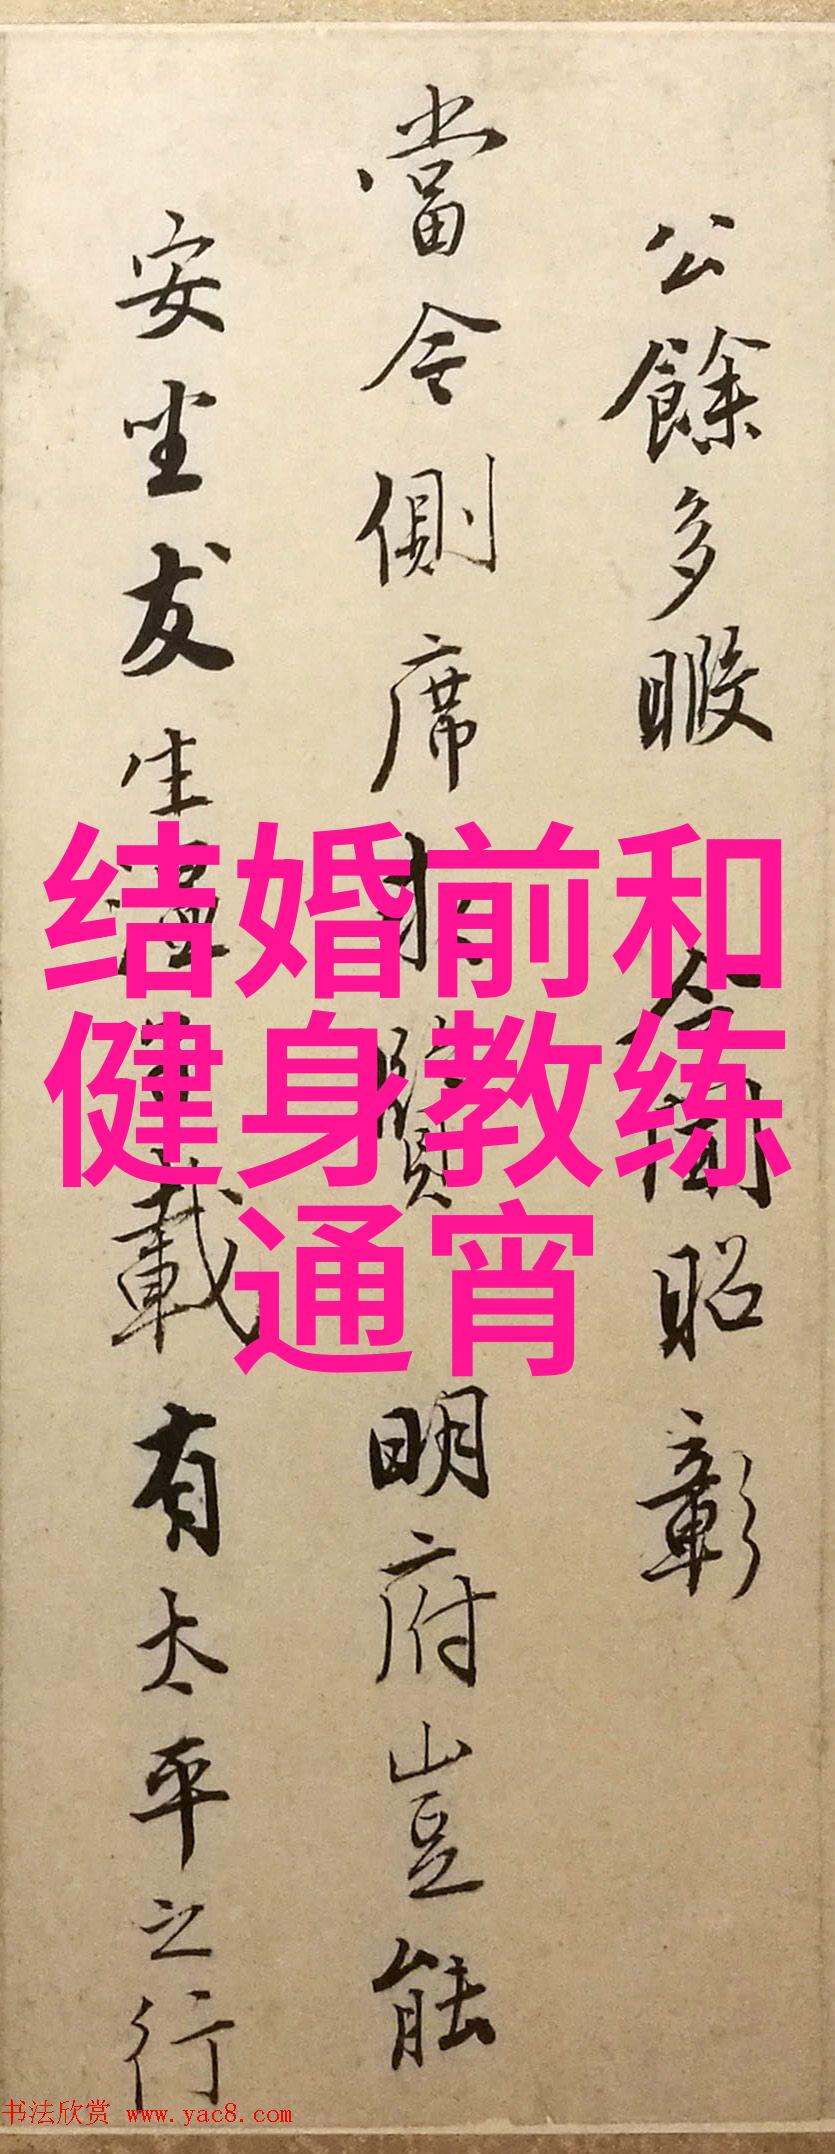 公餘多暇 令聞昭彰
當今側席求賢 明府豈能
安坐友生溫 載有太平之行
结婚前和
健身教练
通宵
书法欣赏 www.yac8.com